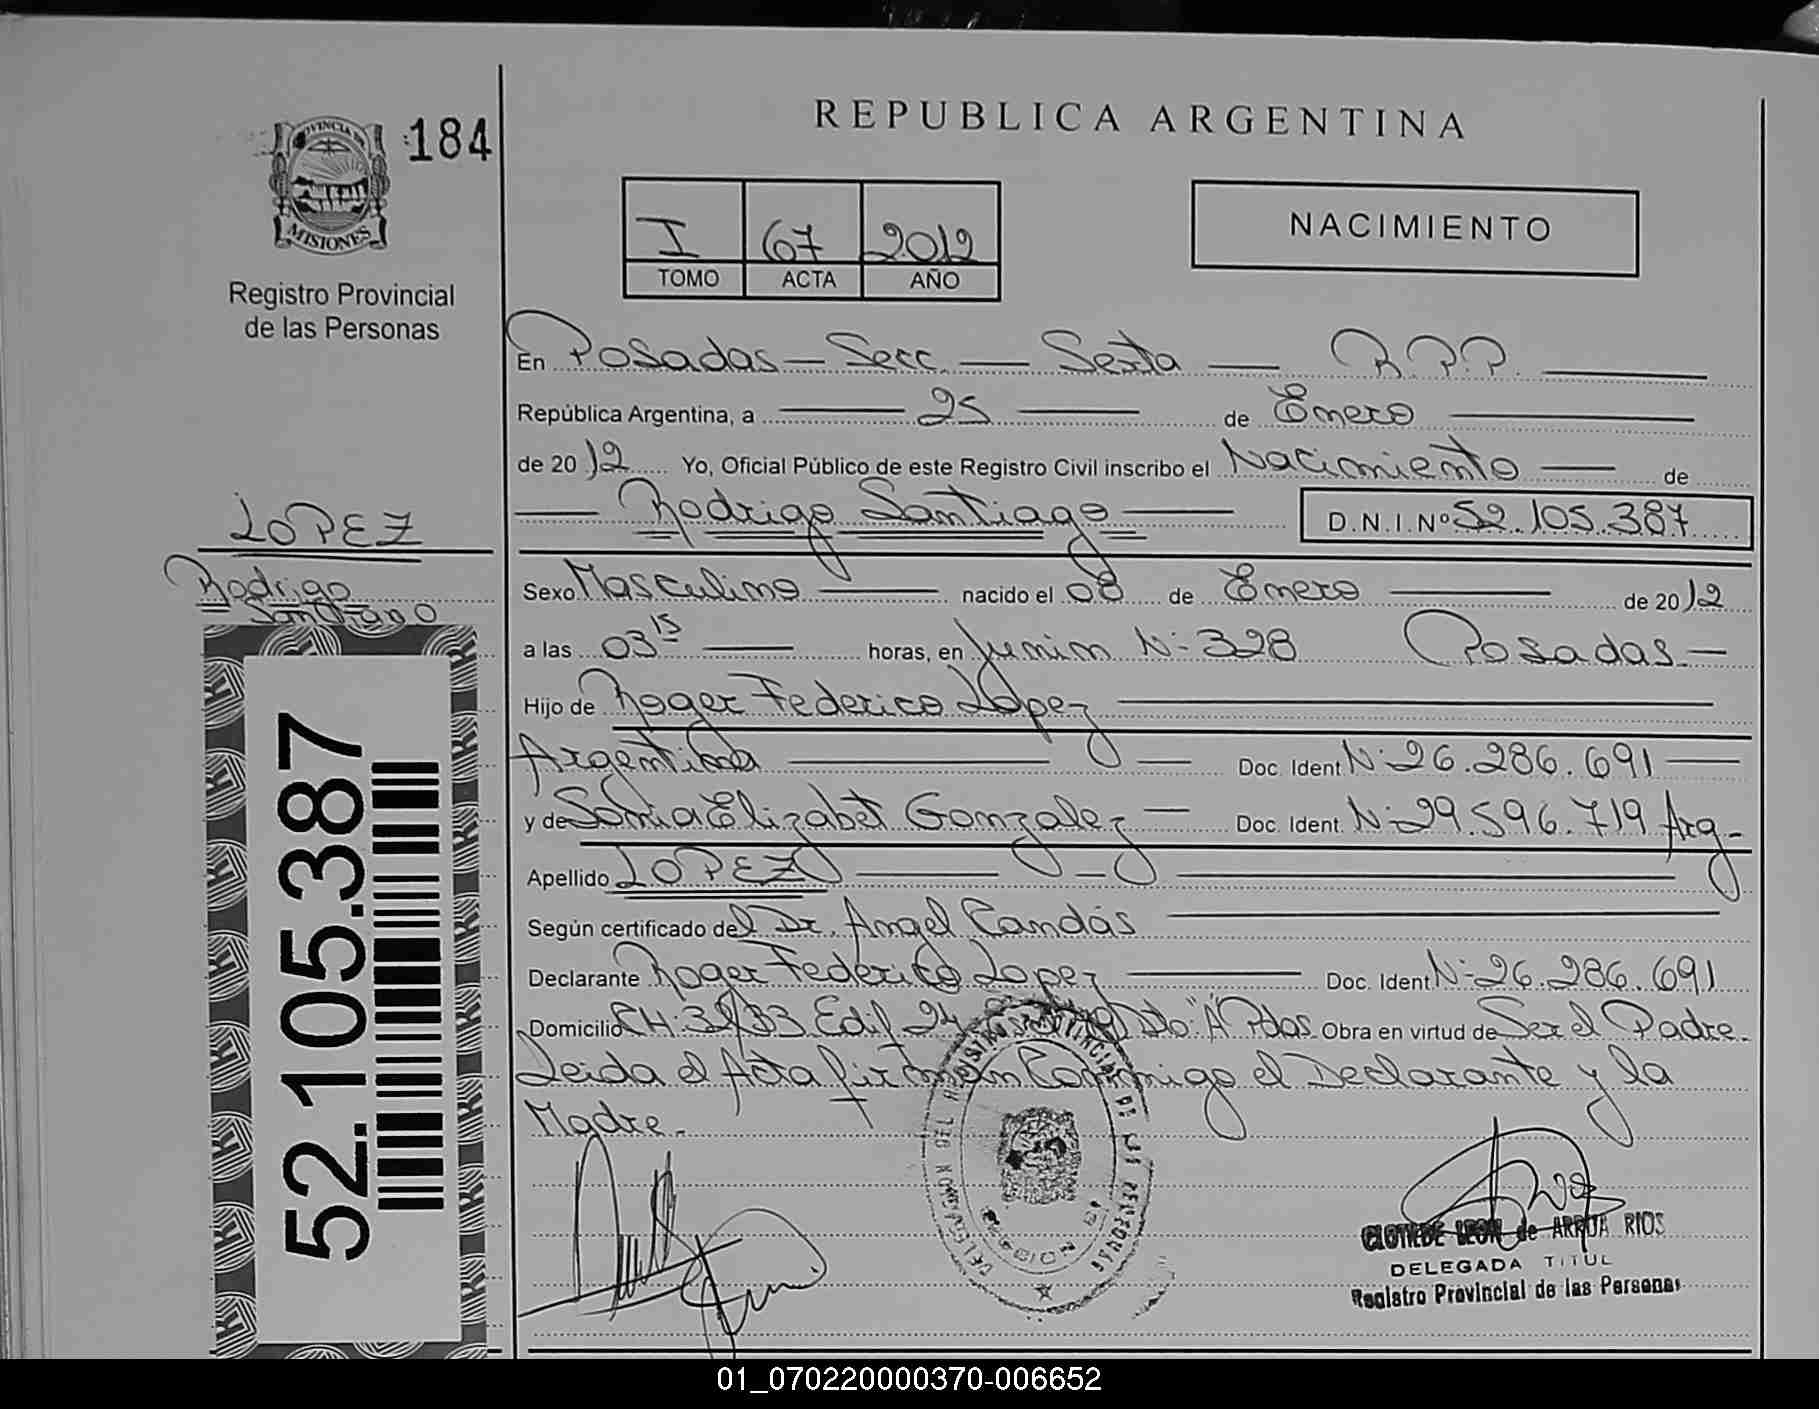 REPUBLICA ARGENTINA
PROVINCIA DE
MISIONES
184
Registro Provincial
de las Personas
I 67 2012
TOMO ACTA AÑO
NACIMIENTO
En Posadas — Secc. — Sexta — R.P.P. —
República Argentina, a — 25 — de Enero —
de 2012 Yo, Oficial Público de este Registro Civil inscribo el Nacimiento — de
— Rodrigo Santiago — D.N.I.Nº 52.105.387
LOPEZ
Rodrigo
Santiago
52.105.387
Sexo Masculino — nacido el 08 de Enero — de 2012
a las 03 15 — horas, en Junin N: 328 Posadas. —
Hijo de Roger Federico Lopez —
Argentina — Doc. Ident. N: 26.286.691 —
y de Sonia Elizabet Gonzalez — Doc. Ident. N: 29.596.719 Arg -
Apellido LOPEZ —
Según certificado del Dr. Angel Candás —
Declarante Roger Federico Lopez — Doc. Ident. N: 26.286.691
Domicilio CH. 32/33 Edif. 24 Dto: "A" Pdas. Obra en virtud de Ser el Padre.
Leida el Acta firman Conmigo el Declarante y la
Madre.
DELEGACION DEL REGISTRO PROVINCIAL DE LAS PERSONAS
CLOTILDE LEON de ARRUA RIOS
DELEGADA TITUL
Registro Provincial de las Personas
01_070220000370-006652